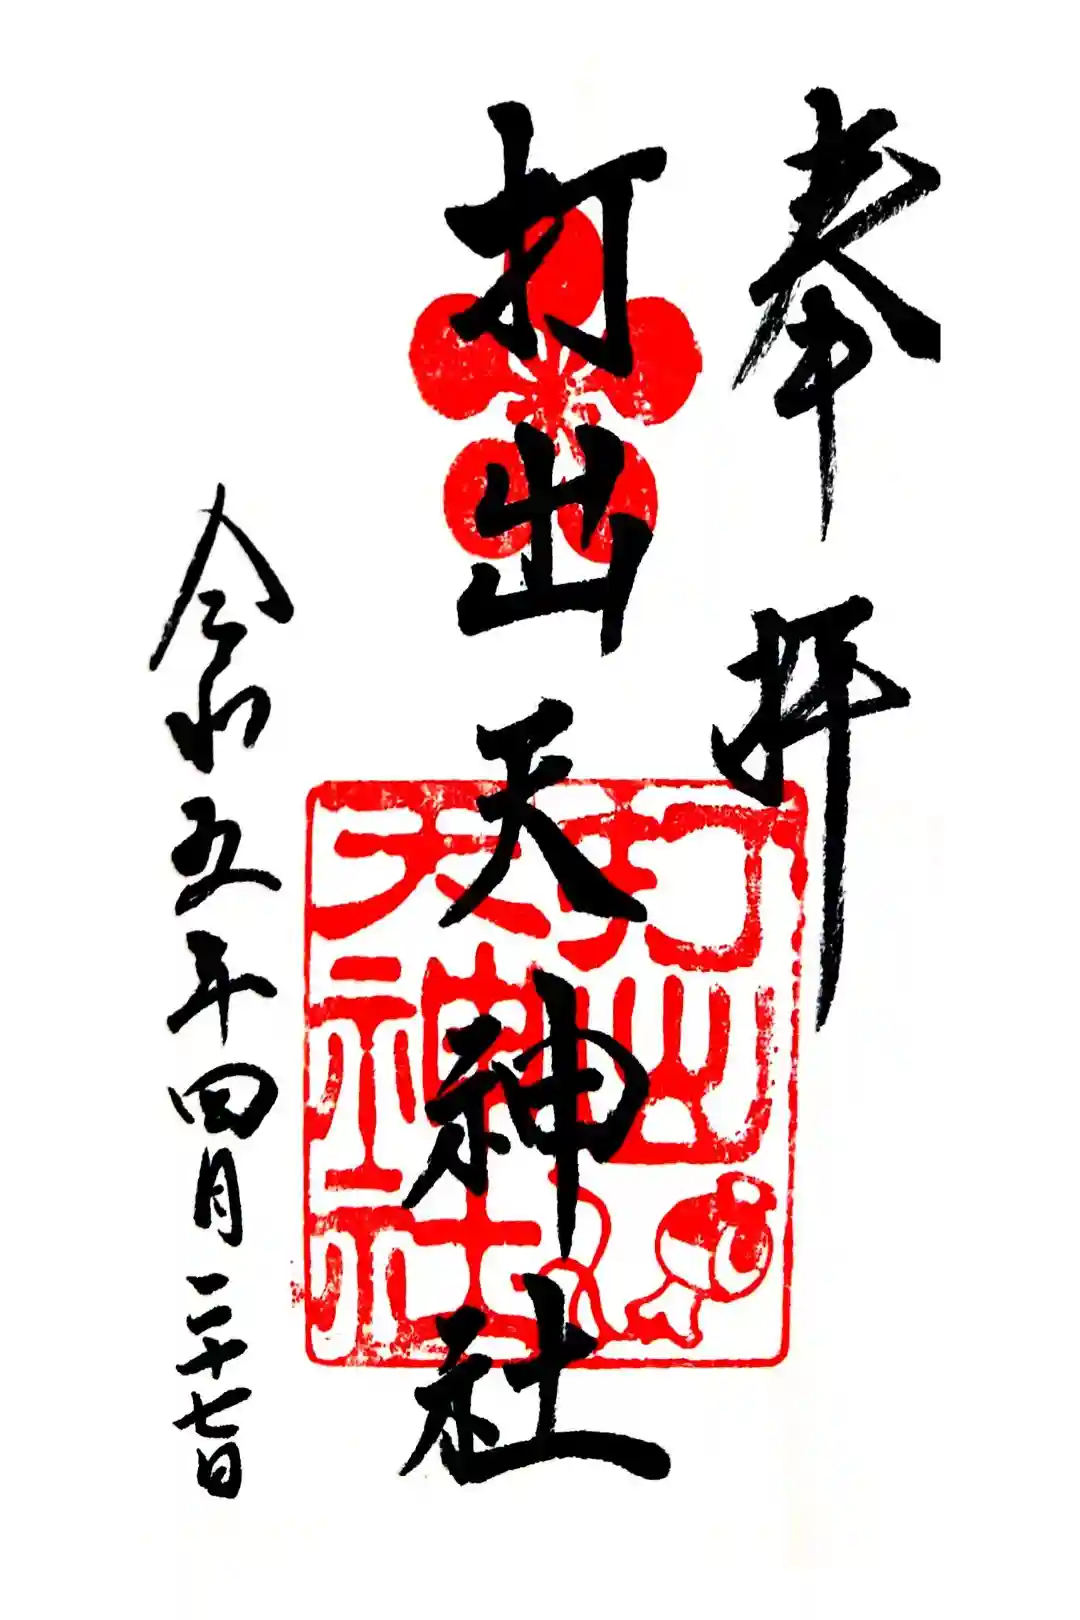 奉拝
打出天神社
打出
天神社
令和五年四月二十七日